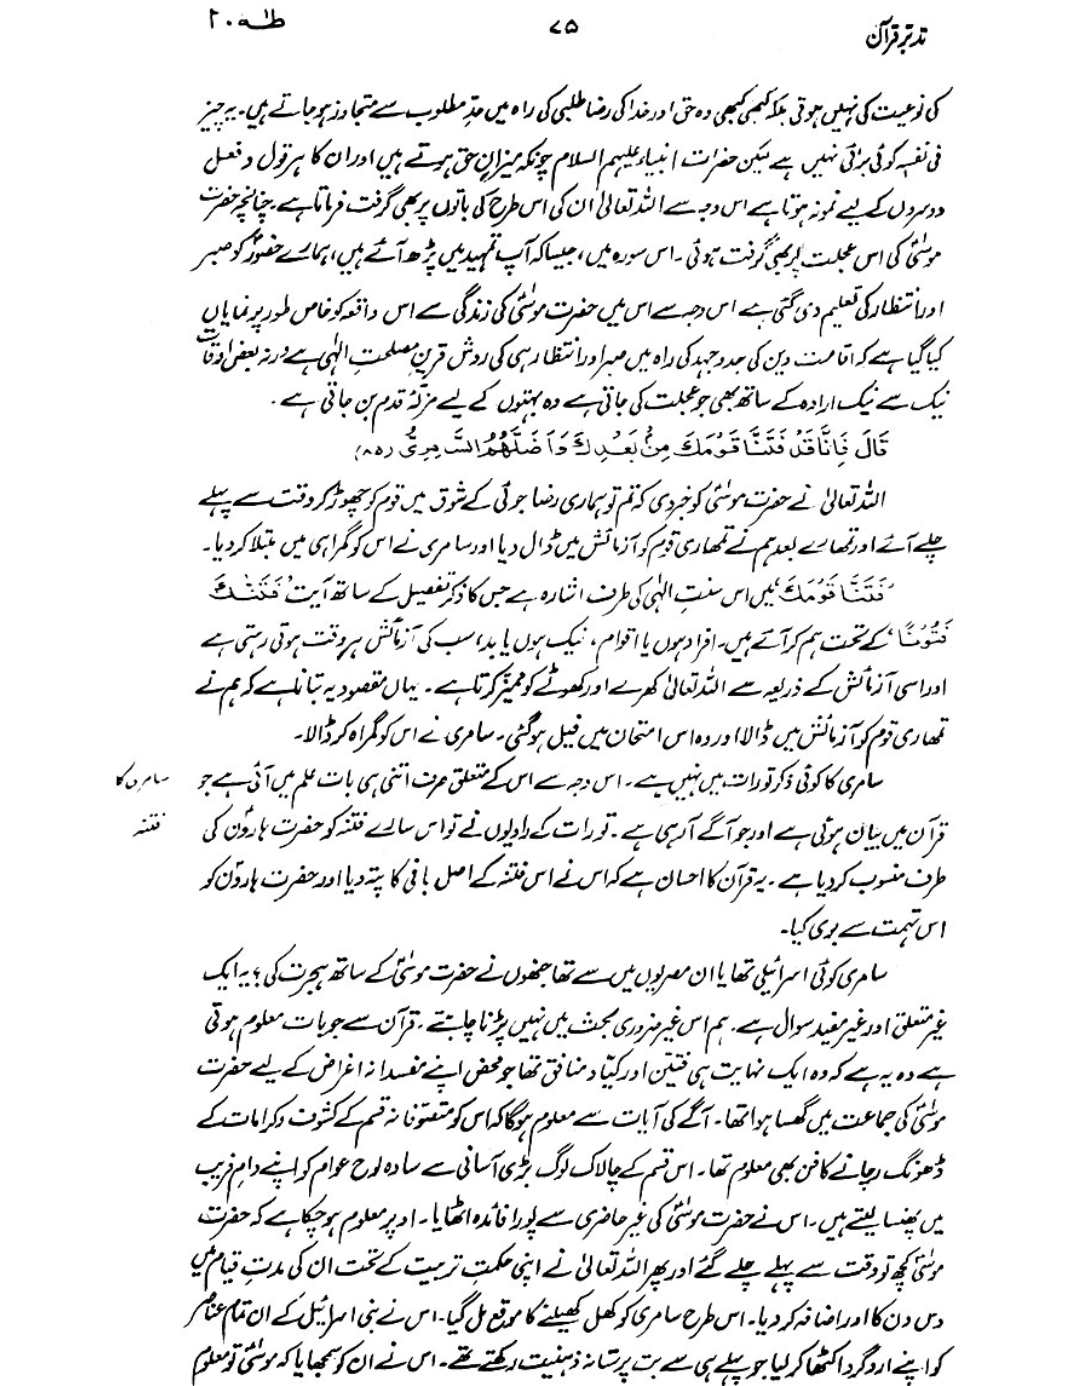 تدبرِ قرآن ۷۵ طٰہٰ ۲۰
کی نوعیت کی نہیں ہوتی بلکہ کبھی کبھی وہ حق اور خدا کی رضا طلبی کی راہ میں حدِ مطلوب سے متجاوز ہو جاتے ہیں۔ یہ چیز
فی نفسہٖ کوئی برائی نہیں ہے لیکن حضرات انبیاء علیہم السلام چونکہ میزانِ حق ہوتے ہیں اور ان کا ہر قول و فعل
دوسروں کے لیے نمونہ ہوتا ہے اس وجہ سے اللہ تعالیٰ ان کی اس طرح کی باتوں پر بھی گرفت فرماتا ہے۔ چنانچہ حضرت
موسٰیؑ کی اس عجلت پر بھی گرفت ہوئی۔ اس سورہ میں، جیسا کہ آپ تمہید میں پڑھ آئے ہیں، ہمارے حضورؐ کو صبر
اور انتظار کی تعلیم دی گئی ہے اس وجہ سے اس میں حضرت موسٰیؑ کی زندگی سے اس واقعہ کو خاص طور پر نمایاں
کیا گیا ہے کہ اقامت دین کی جدوجہد کی راہ میں صبر اور انتظار ہی کی روش قرینِ مصلحتِ الٰہی ہے ورنہ بعض اوقات
نیک سے نیک ارادہ کے ساتھ بھی جو عجلت کی جاتی ہے وہ بہتوں کے لیے مزلّۂ قدم بن جاتی ہے۔
قَالَ فَاِنَّا قَدْ فَتَنَّا قَوْمَكَ مِنْۢ بَعْدِكَ وَاَضَلَّهُمُ السَّامِرِيُّ (۸۵)
اللہ تعالیٰ نے حضرت موسٰیؑ کو خبر دی کہ تم تو ہماری رضا جوئی کے شوق میں قوم کو چھوڑ کر وقت سے پہلے
چلے آئے اور تمھارے بعد ہم نے تمھاری قوم کو آزمائش میں ڈال دیا اور سامری نے اس کو گمراہی میں مبتلا کر دیا۔
’فَتَنَّا قَوْمَكَ‘ میں اس سنتِ الٰہی کی طرف اشارہ ہے جس کا ذکر تفصیل کے ساتھ آیت ’فَتَنّٰكَ
فُتُوْنًا‘ کے تحت ہم کر آئے ہیں۔ افراد ہوں یا اقوام، نیک ہوں یا بد، سب کی آزمائش ہر وقت ہوتی رہتی ہے
اور اسی آزمائش کے ذریعہ سے اللہ تعالیٰ کھرے اور کھوٹے کو ممیّز کرتا ہے۔ یہاں مقصود یہ بتانا ہے کہ ہم نے
تمھاری قوم کو آزمائش میں ڈالا اور وہ اس امتحان میں فیل ہو گئی۔ سامری نے اس کو گمراہ کر ڈالا۔
سامری کا کوئی ذکر تورات میں نہیں ہے۔ اس وجہ سے اس کے متعلق صرف اتنی ہی بات علم میں آئی ہے جو
سامری کا
قرآن میں بیان ہوئی ہے اور جو آگے آ رہی ہے۔ تورات کے راویوں نے تو اس سارے فتنہ کو حضرت ہارونؑ کی
فتنہ
طرف منسوب کر دیا ہے۔ یہ قرآن کا احسان ہے کہ اس نے اس فتنہ کے اصل بانی کا پتہ دیا اور حضرت ہارونؑ کو
اس تہمت سے بری کیا۔
سامری کوئی اسرائیلی تھا یا ان مصریوں میں سے تھا جنھوں نے حضرت موسٰیؑ کے ساتھ ہجرت کی؟ یہ ایک
غیر متعلق اور غیر مفید سوال ہے۔ ہم اس غیر ضروری بحث میں نہیں پڑنا چاہتے۔ قرآن سے جو بات معلوم ہوتی
ہے وہ یہ ہے کہ وہ ایک نہایت ہی فتین اور کیّاد منافق تھا جو محض اپنے مفسدانہ اغراض کے لیے حضرت
موسٰیؑ کی جماعت میں گھسا ہوا تھا۔ آگے کی آیات سے معلوم ہوگا کہ اس کو متصوّفانہ قسم کے کشوف و کرامات کے
ڈھونگ رچانے کا فن بھی معلوم تھا۔ اس قسم کے چالاک لوگ بڑی آسانی سے سادہ لوح عوام کو اپنے دامِ فریب
میں پھنسا لیتے ہیں۔ اس نے حضرت موسٰیؑ کی غیر حاضری سے پورا فائدہ اٹھایا۔ اوپر معلوم ہو چکا ہے کہ حضرت
موسٰیؑ کچھ تو وقت سے پہلے چلے گئے اور پھر اللہ تعالیٰ نے اپنی حکمتِ تربیت کے تحت ان کی مدتِ قیام میں
دس دن کا اور اضافہ کر دیا۔ اس طرح سامری کو کھل کھیلنے کا موقع مل گیا۔ اس نے بنی اسرائیل کے ان تمام عناصر
کو اپنے ارد گرد اکٹھا کر لیا جو پہلے ہی سے بت پرستانہ ذہنیت رکھتے تھے۔ اس نے ان کو سمجھایا کہ موسٰیؑ تو معلوم